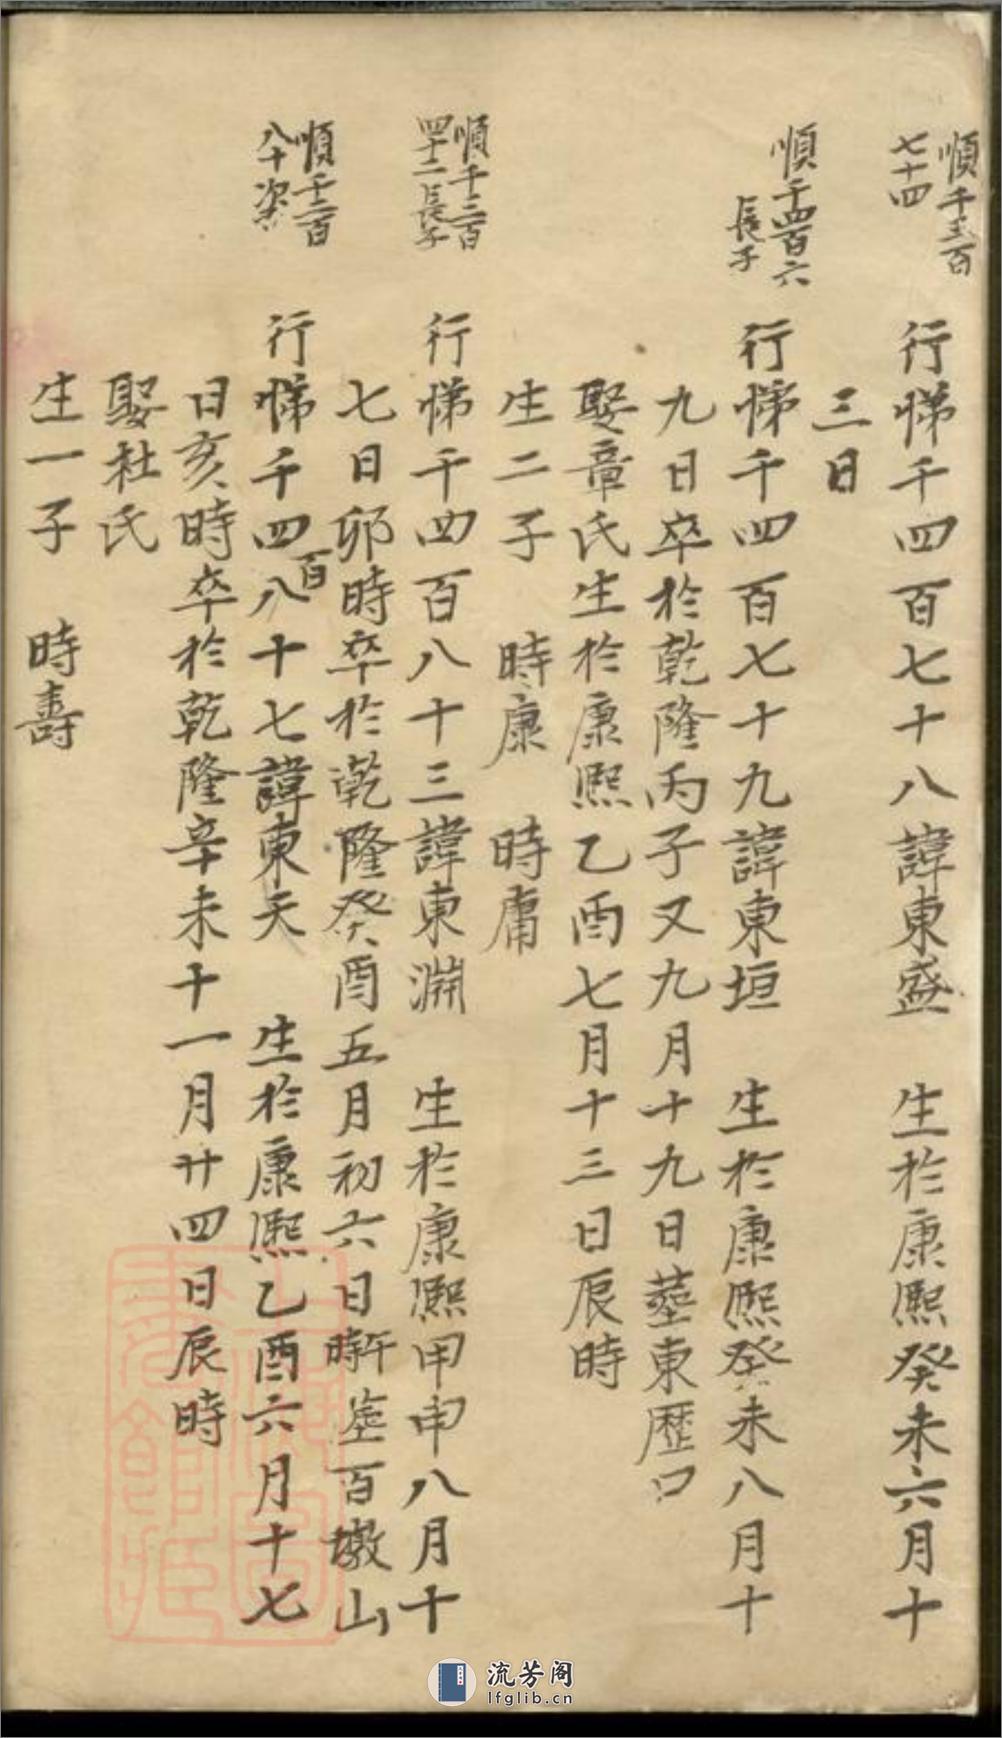 順千三百
七十四
行悌千四百七十八諱東盛　生於康熙癸未六月十
三日
順千四百六
長子
行悌千四百七十九諱東垣　生於康熙癸未八月十
九日卒於乾隆丙子又九月十九日葬東歷口
娶章氏生於康熙乙酉七月十三日辰時
生二子　時康　時庸
順千三百
四十二長子
行悌千四百八十三諱東淵　生於康熙甲申八月十
七日卯時卒於乾隆癸酉五月初六日午時塟百墩山
順千三百
八十次子
行悌千四百八十七諱東天　生於康熙乙酉六月十七
日亥時卒於乾隆辛未十一月廿四日辰時
娶杜氏
生一子　時壽
流芳阁
lfglib.cn